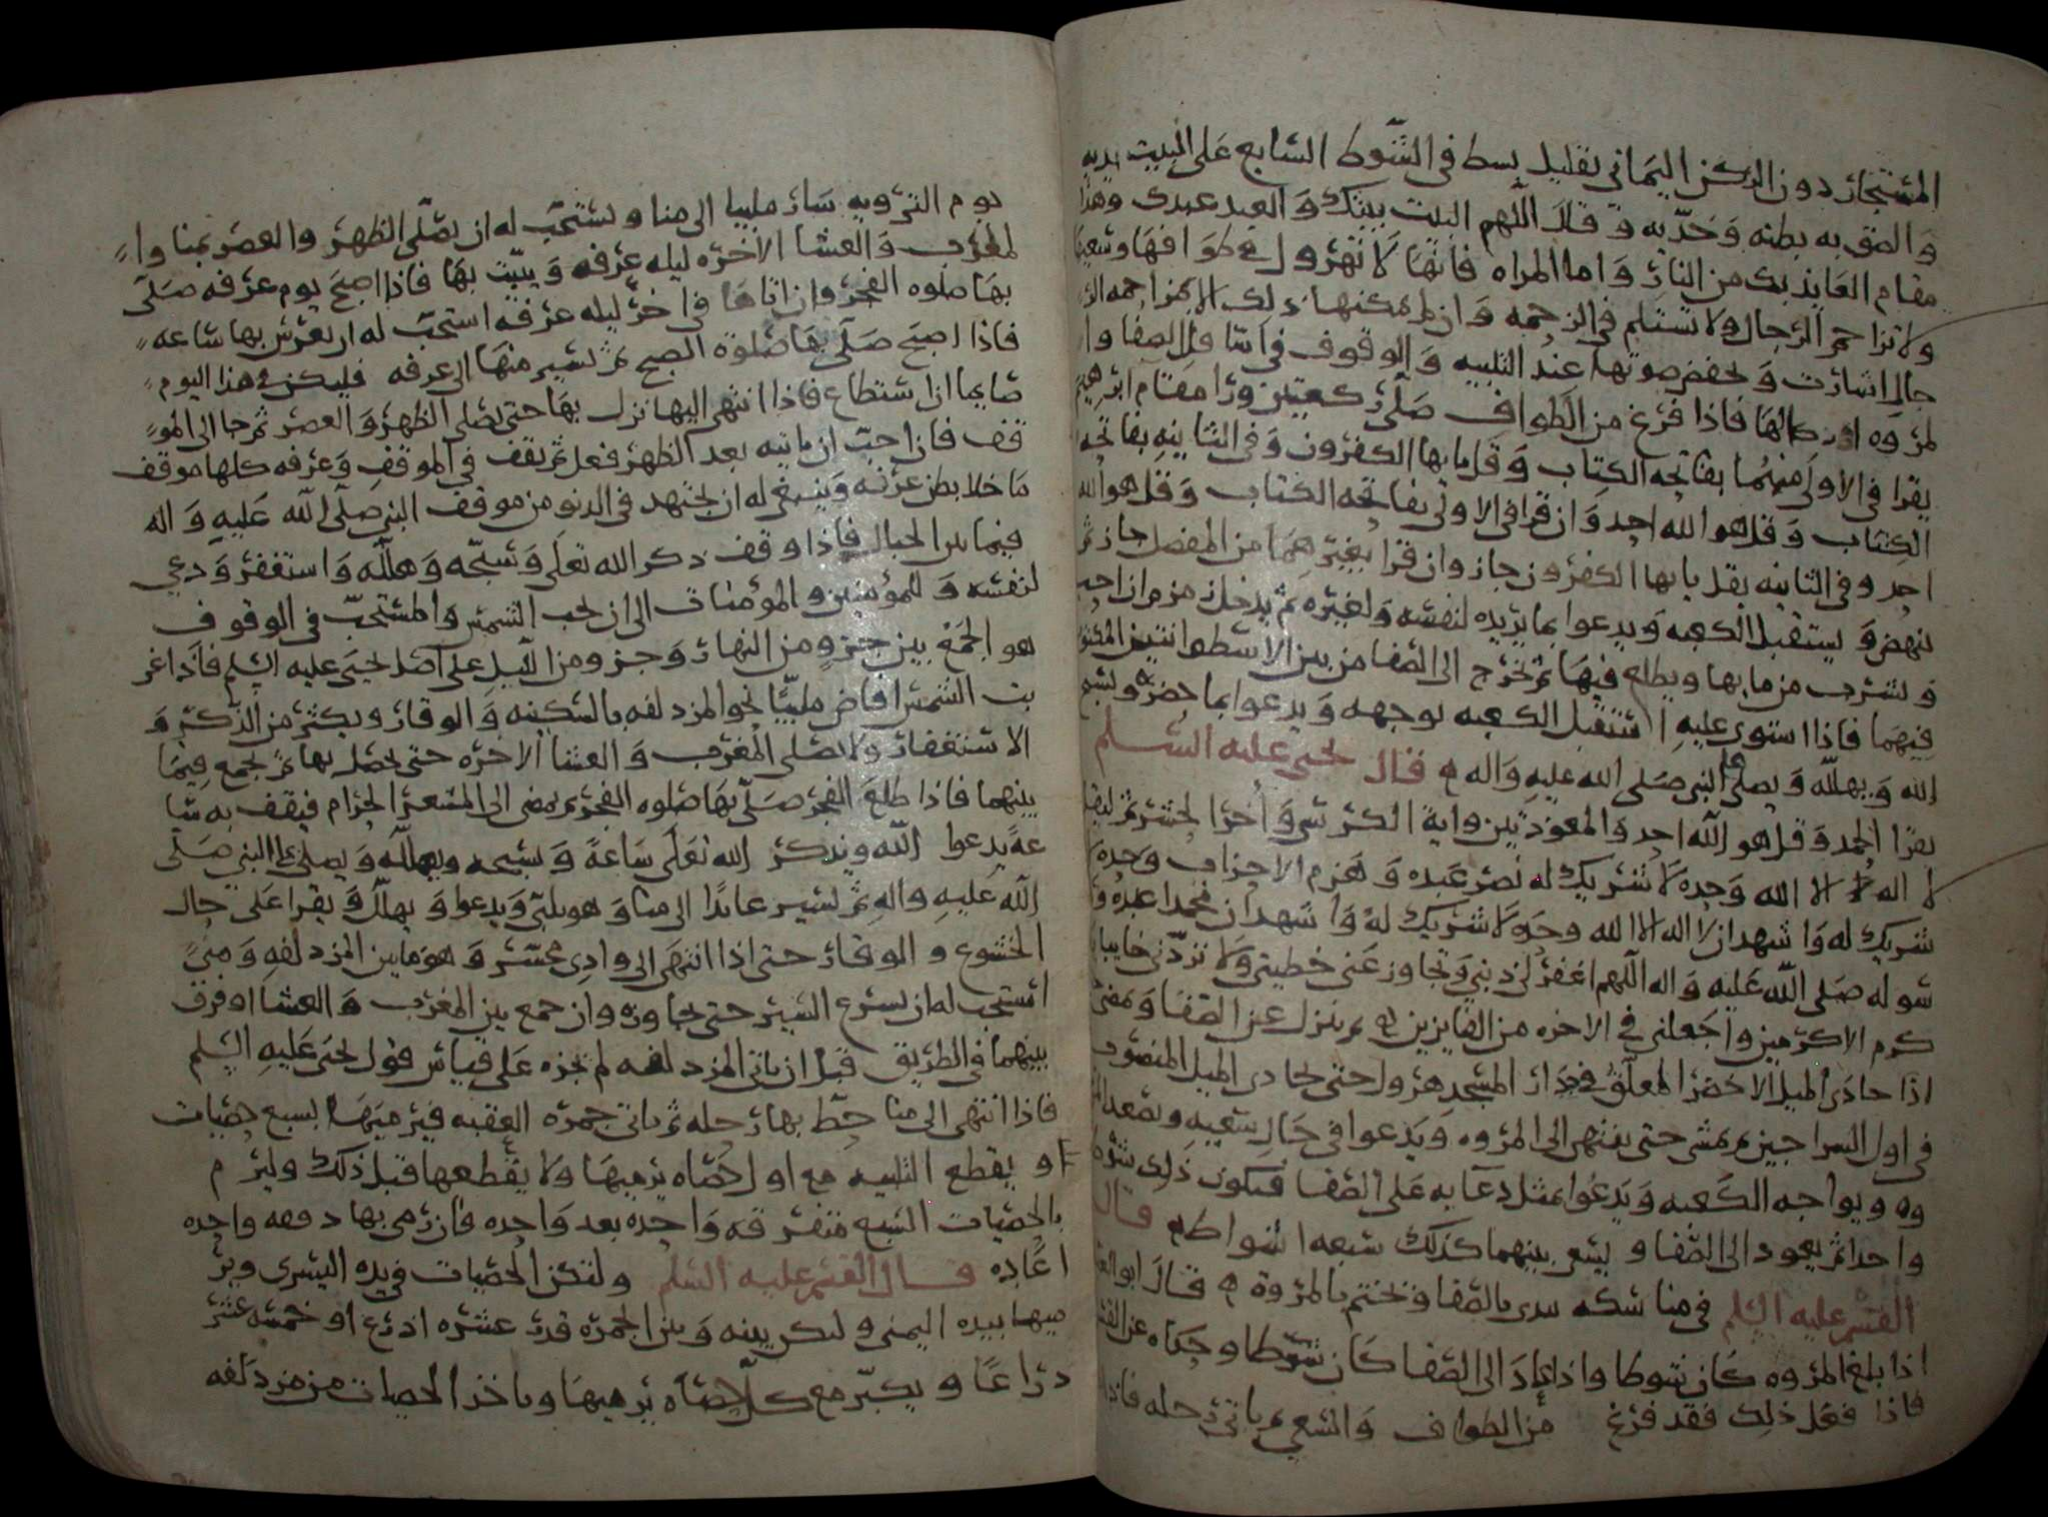 المستجار دون الركن اليماني بقليل بسط في الشوط السابع على البيت يديه
والصق به بطنه وخدّيه وقال اللهم البيت بيتك والعبد عبدك وهذا
مقام العايذ بك من النار واما المراه فانها لا تهرول في طوافها وسعيها
ولا تزاحم الرجال ولا تستلم في الزحمه وان لم يمكنها ذلك الا بمزاحمه الر
جال اشارت وتخفض صوتها عند التلبيه والوقوف في اسافل الصفا وا
لمروه فاذا فرغ من الطواف صلى ركعتين ورا مقام ابرهيم
يقرا في الاولى منهما بفاتحه الكتاب وقل يايها الكفرون وفي الثانيه بفاتحه
الكتاب وقل هو الله احد وان قرا في الاولى بفاتحه الكتاب وقل هو الله
احد وفي الثانيه بقل يايها الكفرون جاز وان قرا بغيرهما من المفصل جاز ثم
ينهض ويستقبل الكعبه ويدعوا بما يريده لنفسه ولغيره ثم يدخل زمزم ان احب
ويشرب من مايها ويطلع فيها ثم يخرج الى الصفا من بين الاسطوانتين المكتوب
فيهما فاذا استوى عليه استقبل الكعبه بوجهه ويدعوا بما حضره ويسبح
الله ويهلله ويصلي على النبي صلى الله عليه واله قال يحيى عليه السلم
يقرا الحمد وقل هو الله احد والمعوذتين واية الكرسي واخر الحشر ثم ليقل
لا اله الا الله وحده لا شريك له نصر عبده وهزم الاحزاب وحده لا
شريك له واشهد ان لا اله الا الله وحده لا شريك له واشهد ان محمدا عبده ور
سوله صلى الله عليه واله اللهم اغفر لي ذنبي وتجاوز عن خطيتي ولا تردني خايبا يا
كرم الاكرمين واجعلني في الاخره من الفايزين ثم ينزل عن الصفا ويمضي
اذا حاذى الميل الاخضر المعلق في جدار المسجد هرول حتى يحاذي الميل المنصوب
في اول السراجين ثم يمشي حتى ينتهي الى المروه ويدعوا في حال سعيه ويصعد المر
وه ويواجه الكعبه ويدعوا بمثل دعايه على الصفا فيكون ذلك شوطا
واحدا ثم يعود الى الصفا ويسعى بينهما كذلك سبعه اشواط قال
القسم عليه السلم في مناسكه يبدى بالصفا ويختم بالمروة قال ابو العبا
اذا بلغ المروه كان شوطا واذا عاد الى الصفا كان شوطا وحكاه عن القسم
فاذا فعل ذلك فقد فرغ من الطواف والسعي ثم ياتي رحله فاذا
يوم الترويه سار ملبيا الى منا ويستحب له ان يصلي الظهر والعصر بمنا وا
لمغرب والعشا الاخره ليله عرفه ويبيت بها فاذا اصبح يوم عرفه صلى
بها صلوه الفجر وان اتاها في اخر ليله عرفه استحب له ان يعرس بها ساعه
فاذا اصبح صلى بها صلوة الصبح ثم يسير منها الى عرفه فليكن في هذا اليوم
صايما ان استطاع فاذا انتهى اليها نزل بها حتى يصلي الظهر والعصر ثم جا الى المو
قف فان احب ان ياتيه بعد الظهر فعل ثم يقف في الموقف وعرفه كلها موقف
ما خلا بطن عرنه وينبغي له ان يجتهد في الدنو من موقف النبي صلى الله عليه واله
فيما بين الجبال فاذا وقف ذكر الله تعلى وسبحه وهلله واستغفر ودعى
لنفسه وللمؤمنين والمؤمنات الى ان تجب الشمس والمستحب في الوقوف
هو الجمع بين جزو من النهار وجزو من الليل على اصل يحيى عليه السلم فاذا غر
بت الشمس افاض ملبيا نحو المزدلفه بالسكينه والوقار ويكثر من الذكر و
الاستغفار ولا يصلي المغرب والعشا الاخره حتى يحصل بها ثم يجمع فيها
بينهما فاذا طلع الفجر صلى بها صلوه الفجر ثم يمضى الى المشعر الحرام فيقف به سا
عة يدعوا الله ويذكر الله تعلى ساعة ويسبحه ويهلله ويصلي على النبي صلى
الله عليه واله ثم يسير عايدا الى منا وهو يلبي ويدعوا ويهلل ويقرا على حال
الخشوع والوقار حتى اذا انتهى الى وادي محسر وهو ما بين المزدلفه ومنى
استحب له ان يسرع السير حتى يجاوزه وان جمع بين المغرب والعشا او فرق
بينهما في الطريق قبل ان ياتي المزدلفه لم تجزه على قياس قول يحيى عليه السلم
فاذا انتهى الى منا حط بها رحله ثم ياتي جمره العقبه فيرميها بسبع حصيات
ويقطع التلبيه مع اول حصاه يرميها ولا يقطعها قبل ذلك وليرم
بالحصيات السبع متفرقه واحده بعد واحده فان رمى بها دفعه واحده
اعاده قال القسم عليه السلم ولتكن الحصيات في يده اليسرى وير
ميها بيده اليمنى وليكن بينه وبين الجمره قدر عشره اذرع او خمسه عشر
ذراعا ويكبر مع كل حصاه يرميها وياخذ الحصيات من مزدلفه